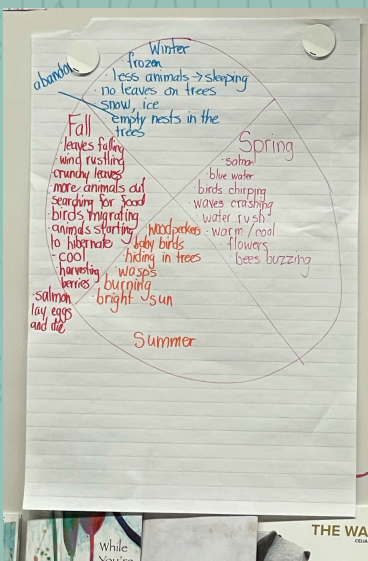 Winter
frozen
· less animals → sleeping
· no leaves on trees
snow, ice
empty nests in the
trees
abandon
Fall
· leaves falling
· wind rustling
crunchy leaves
· more animals out
searching for food
· birds migrating
· animals starting
to hibernate
· cool
· harvesting
berries
· salmon
lay eggs
and die
Spring
· salmon
· blue water
· birds chirping
· waves crashing
water rush
· warm / cool
· flowers
· bees buzzing
woodpeckers
baby birds
hiding in trees
· wasps
· burning
· bright sun
Summer
While
You're
THE WA